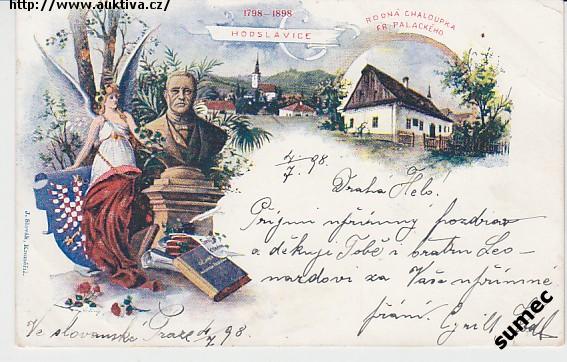 © www.auktiva.cz
1798-1898
HODSLAVICE
RODNÁ CHALOUPKA
FR. PALACKÉHO.
4/7 98.
Drahá Helo!
Přijmi upřímný pozdrav
a děkuje Tobě i bratru Leo-
nardovi za Vaše upřímné
přání. Cyrill
Ve slovanské Praze 4/7 98.
J. Slovák, Kroměříž.
sumec